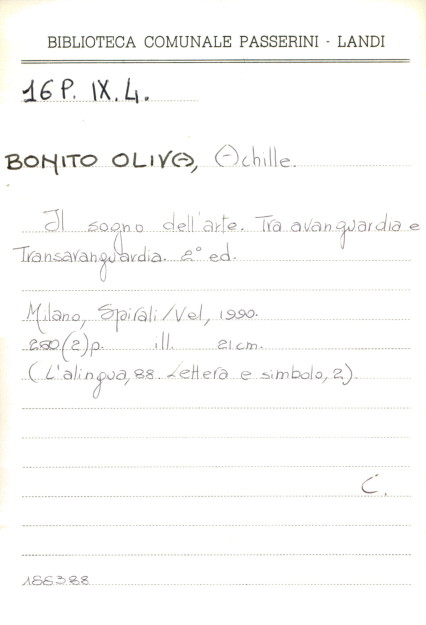 BIBLIOTECA COMUNALE PASSERINI - LANDI
16 P. IX. 4.
BONITO OLIVA, Achille.
Il sogno dell'arte. Tra avanguardia e
Transavanguardia. 2° ed.
Milano, Spirali/Vel, 1990.
280(2)p. ill. 21cm.
(L'alingua, 88. Lettera e simbolo, 2).
C.
186388